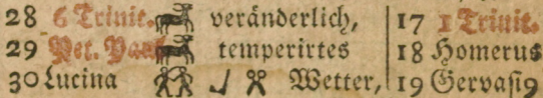 28 6 Trinit. veränderlich, 17 1 Trinit.
29 Pet. Paul temperirtes 18 Homerus
30 Lucina Wetter, 19 Gervasi9